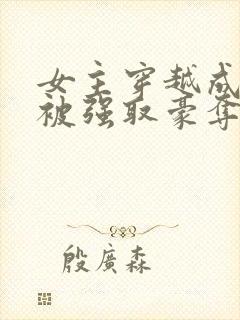 女主穿越成
被强取豪夺
殷廣森